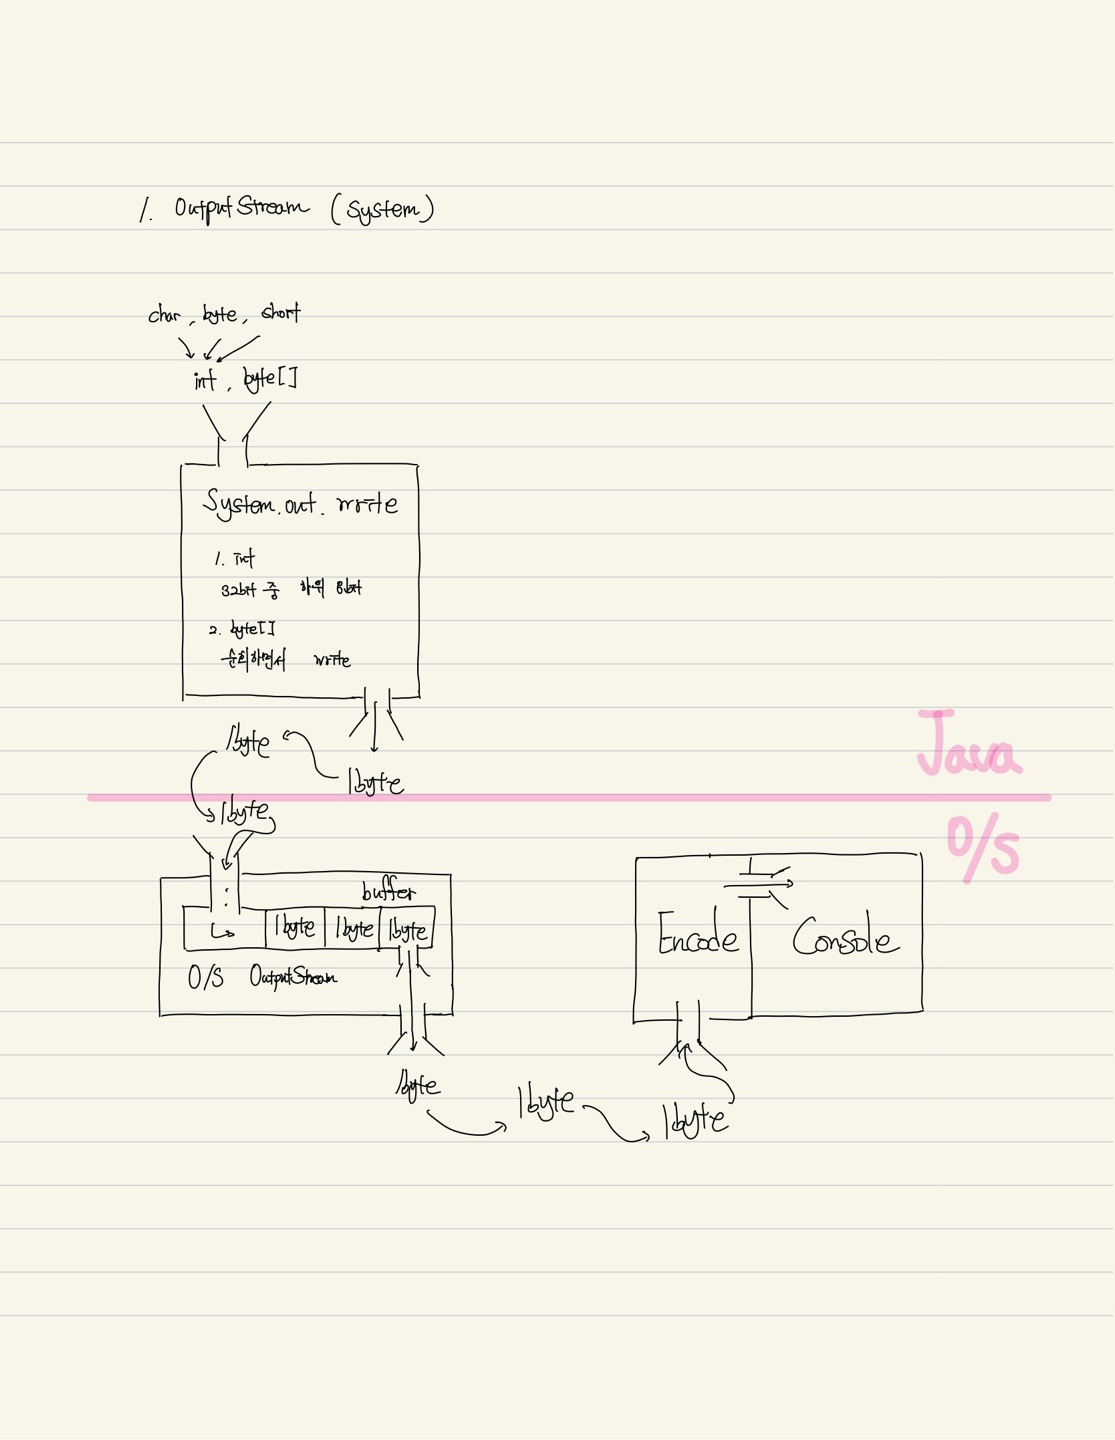 1. OutputStream (System)
char, byte, short
int, byte[]
System.out.write
1. int
32bit 중 하위 8bit
2. byte[]
순회하면서 write
1byte
1byte
Java
1byte
O/S
buffer
1byte 1byte 1byte
O/S OutputStream
Encode Console
1byte
1byte
1byte